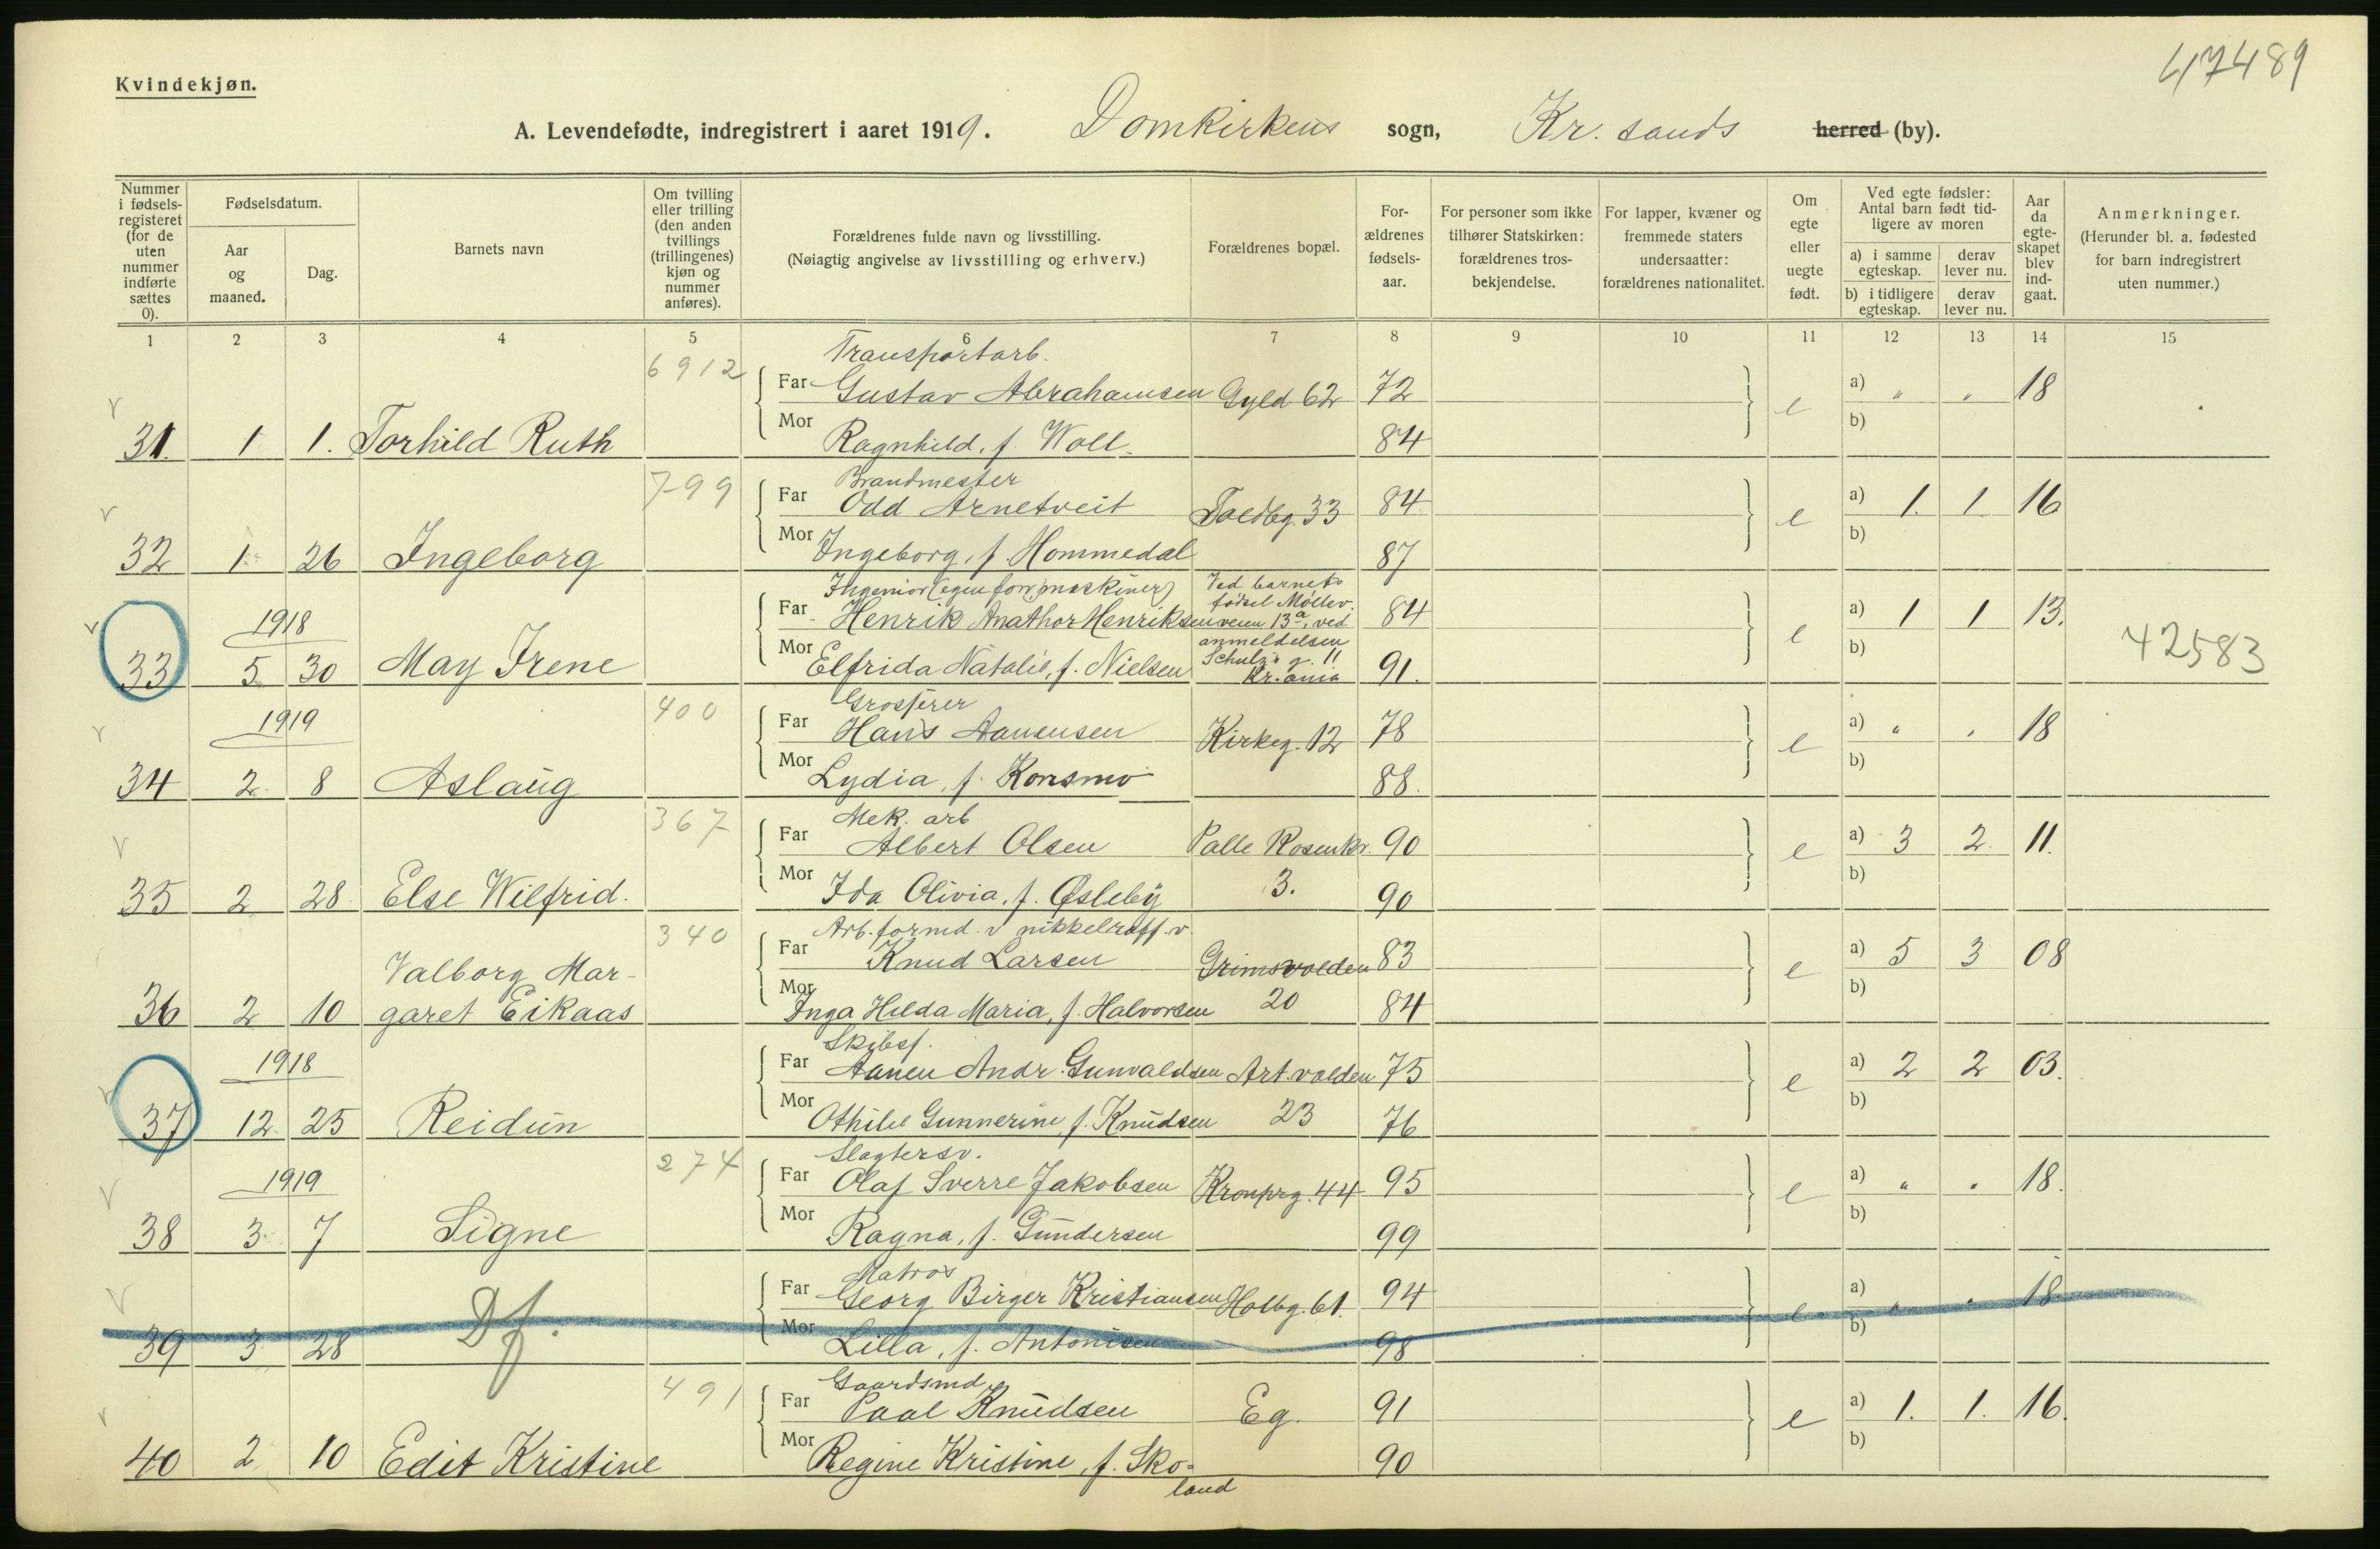 47489
Kvindekjøn.
A. Levendefødte, indregistrert i aaret 1919. Domkirkens sogn, Kr. sands herred (by).
Nummer i fødsels-registeret (for de uten nummer indførte sættes 0).
Fødselsdatum.
Aar og maaned.
Dag.
Barnets navn
Om tvilling eller trilling (den anden tvillings (trillingenes) kjøn og nummer anføres).
Forældrenes fulde navn og livsstilling.
(Nøiagtig angivelse av livsstilling og erhverv.)
Forældrenes bopæl.
For-ældrenes fødsels-aar.
For personer som ikke tilhører Statskirken: forældrenes tros-bekjendelse.
For lapper, kvæner og fremmede staters undersaatter: forældrenes nationalitet.
Om egte eller uegte født.
Ved egte fødsler: Antal barn født tid-ligere av moren
a) i samme egteskap. derav lever nu.
b) i tidligere egteskap. derav lever nu.
Aar da egte-skapet blev ind-gaat.
Anmerkninger.
(Herunder bl. a. fødested for barn indregistrert uten nummer.)
1 2 3 4 5 6 7 8 9 10 11 12 13 14 15
6912 Transportarb.
Far Gustav Abrahamsen Gyld 62 72 e a) " " 18
31. 1 1. Torhild Ruth Mor Ragnhild, f. Woll. 84 b)
799 Brandmester
Far Odd Arnetveit Toldbg. 33 84 e a) 1. 1. 16
32 1 26 Ingeborg Mor Ingeborg, f. Hommedal 87 b)
Ingeniør (egen forr. maskiner) Ved barnets
1918 Far Henrik Anathor Henriksen fødsel Møllev.veien 13a, ved 84 e a) 1 1 13.
33 5 30 May Irene Mor Elfrida Natalie, f. Nielsen anmeldelsen Schulz's g. 11 Kr.ania 91. b) 42583
400 Grosserer
1919 Far Hans Aanensen Kirkeg. 12 78 e a) " " 18
34 2 8 Aslaug Mor Lydia, f. Konsmo 88. b)
367 Mek. arb
Far Albert Olsen Palle Rosenkr. 90 e a) 3 2. 11.
35 2 28. Else Wilfrid. Mor Ida Olivia, f. Øsleby 3. 90 b)
340 Arb. formd. v nikkelraff.v.
Valborg Mar- Far Knud Larsen Grimsvolden 83 e a) 5 3 08
36 2 10 garet Eikaas Mor Inga Hilda Maria, f. Halvorsen 20 84 b)
Skibsf.
1918 Far Aanen Andr. Gunvaldsen Art. volden 75 e a) 2 2 03.
37 12. 25 Reidun Mor Othilie Gunnerine, f. Knudsen 23 76 b)
274 Slagtersv.
1919 Far Olaf Sverre Jakobsen Kronprg. 44 95 e a) " " 18.
38 3 7 Signe Mor Ragna, f. Gundersen 99 b)
Matros
Far Georg Birger Kristiansen Holbg. 61. 94 e a) " " 18
39 3 28 Df. Mor Lilla, f. Antonisen 98 b)
491 Gaardsmd.
Far Paal Knudsen Eg. 91 e a) 1. 1. 16.
40 2 10 Edit Kristine Mor Regine Kristine, f. Sko-
land 90 b)